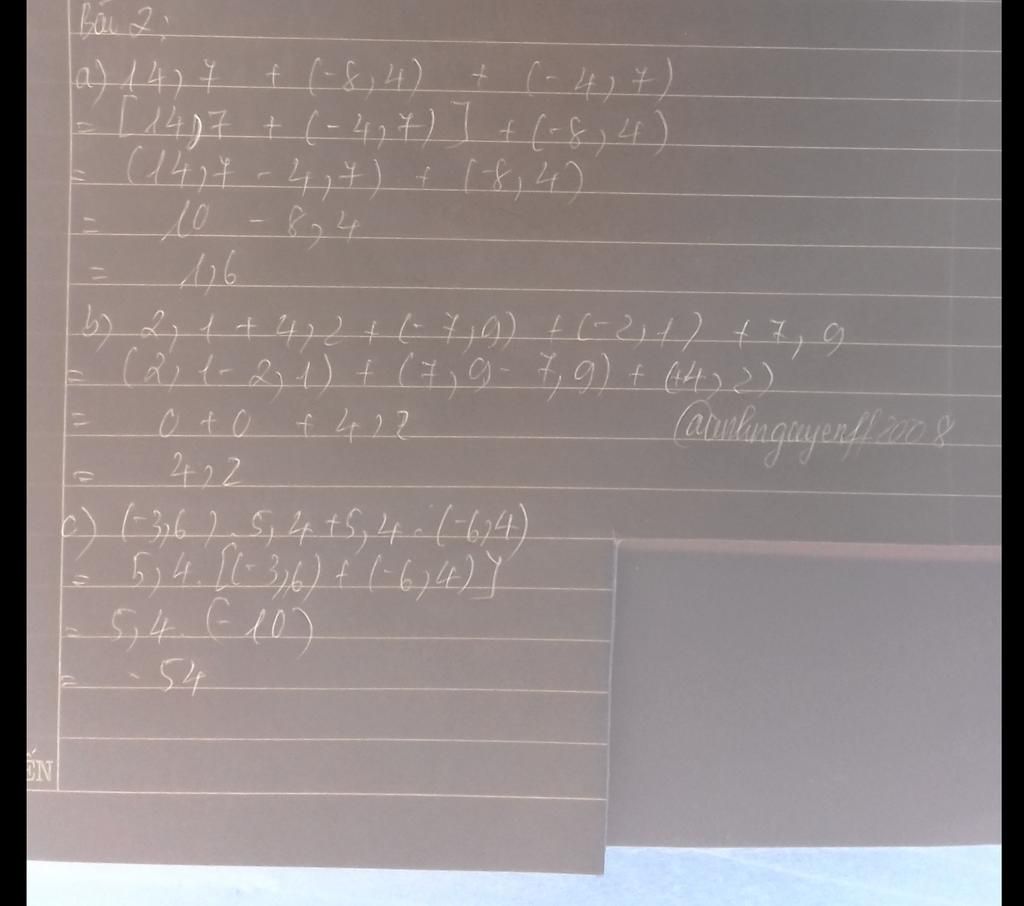 Bài 2:
a) 14,7 + (-8,4) + (-4,7)
= [14,7 + (-4,7)] + (-8,4)
= (14,7 - 4,7) + (-8,4)
= 10 - 8,4
= 1,6
b) 2,1 + 4,2 + (-7,9) + (-2,1) + 7,9
= (2,1 - 2,1) + (7,9 - 7,9) + (+4,2)
= 0 + 0 + 4,2
= 4,2
c) (-3,6) . 5,4 + 5,4 . (-6,4)
= 5,4 . [(-3,6) + (-6,4)]
= 5,4 . (-10)
= -54
ẾN